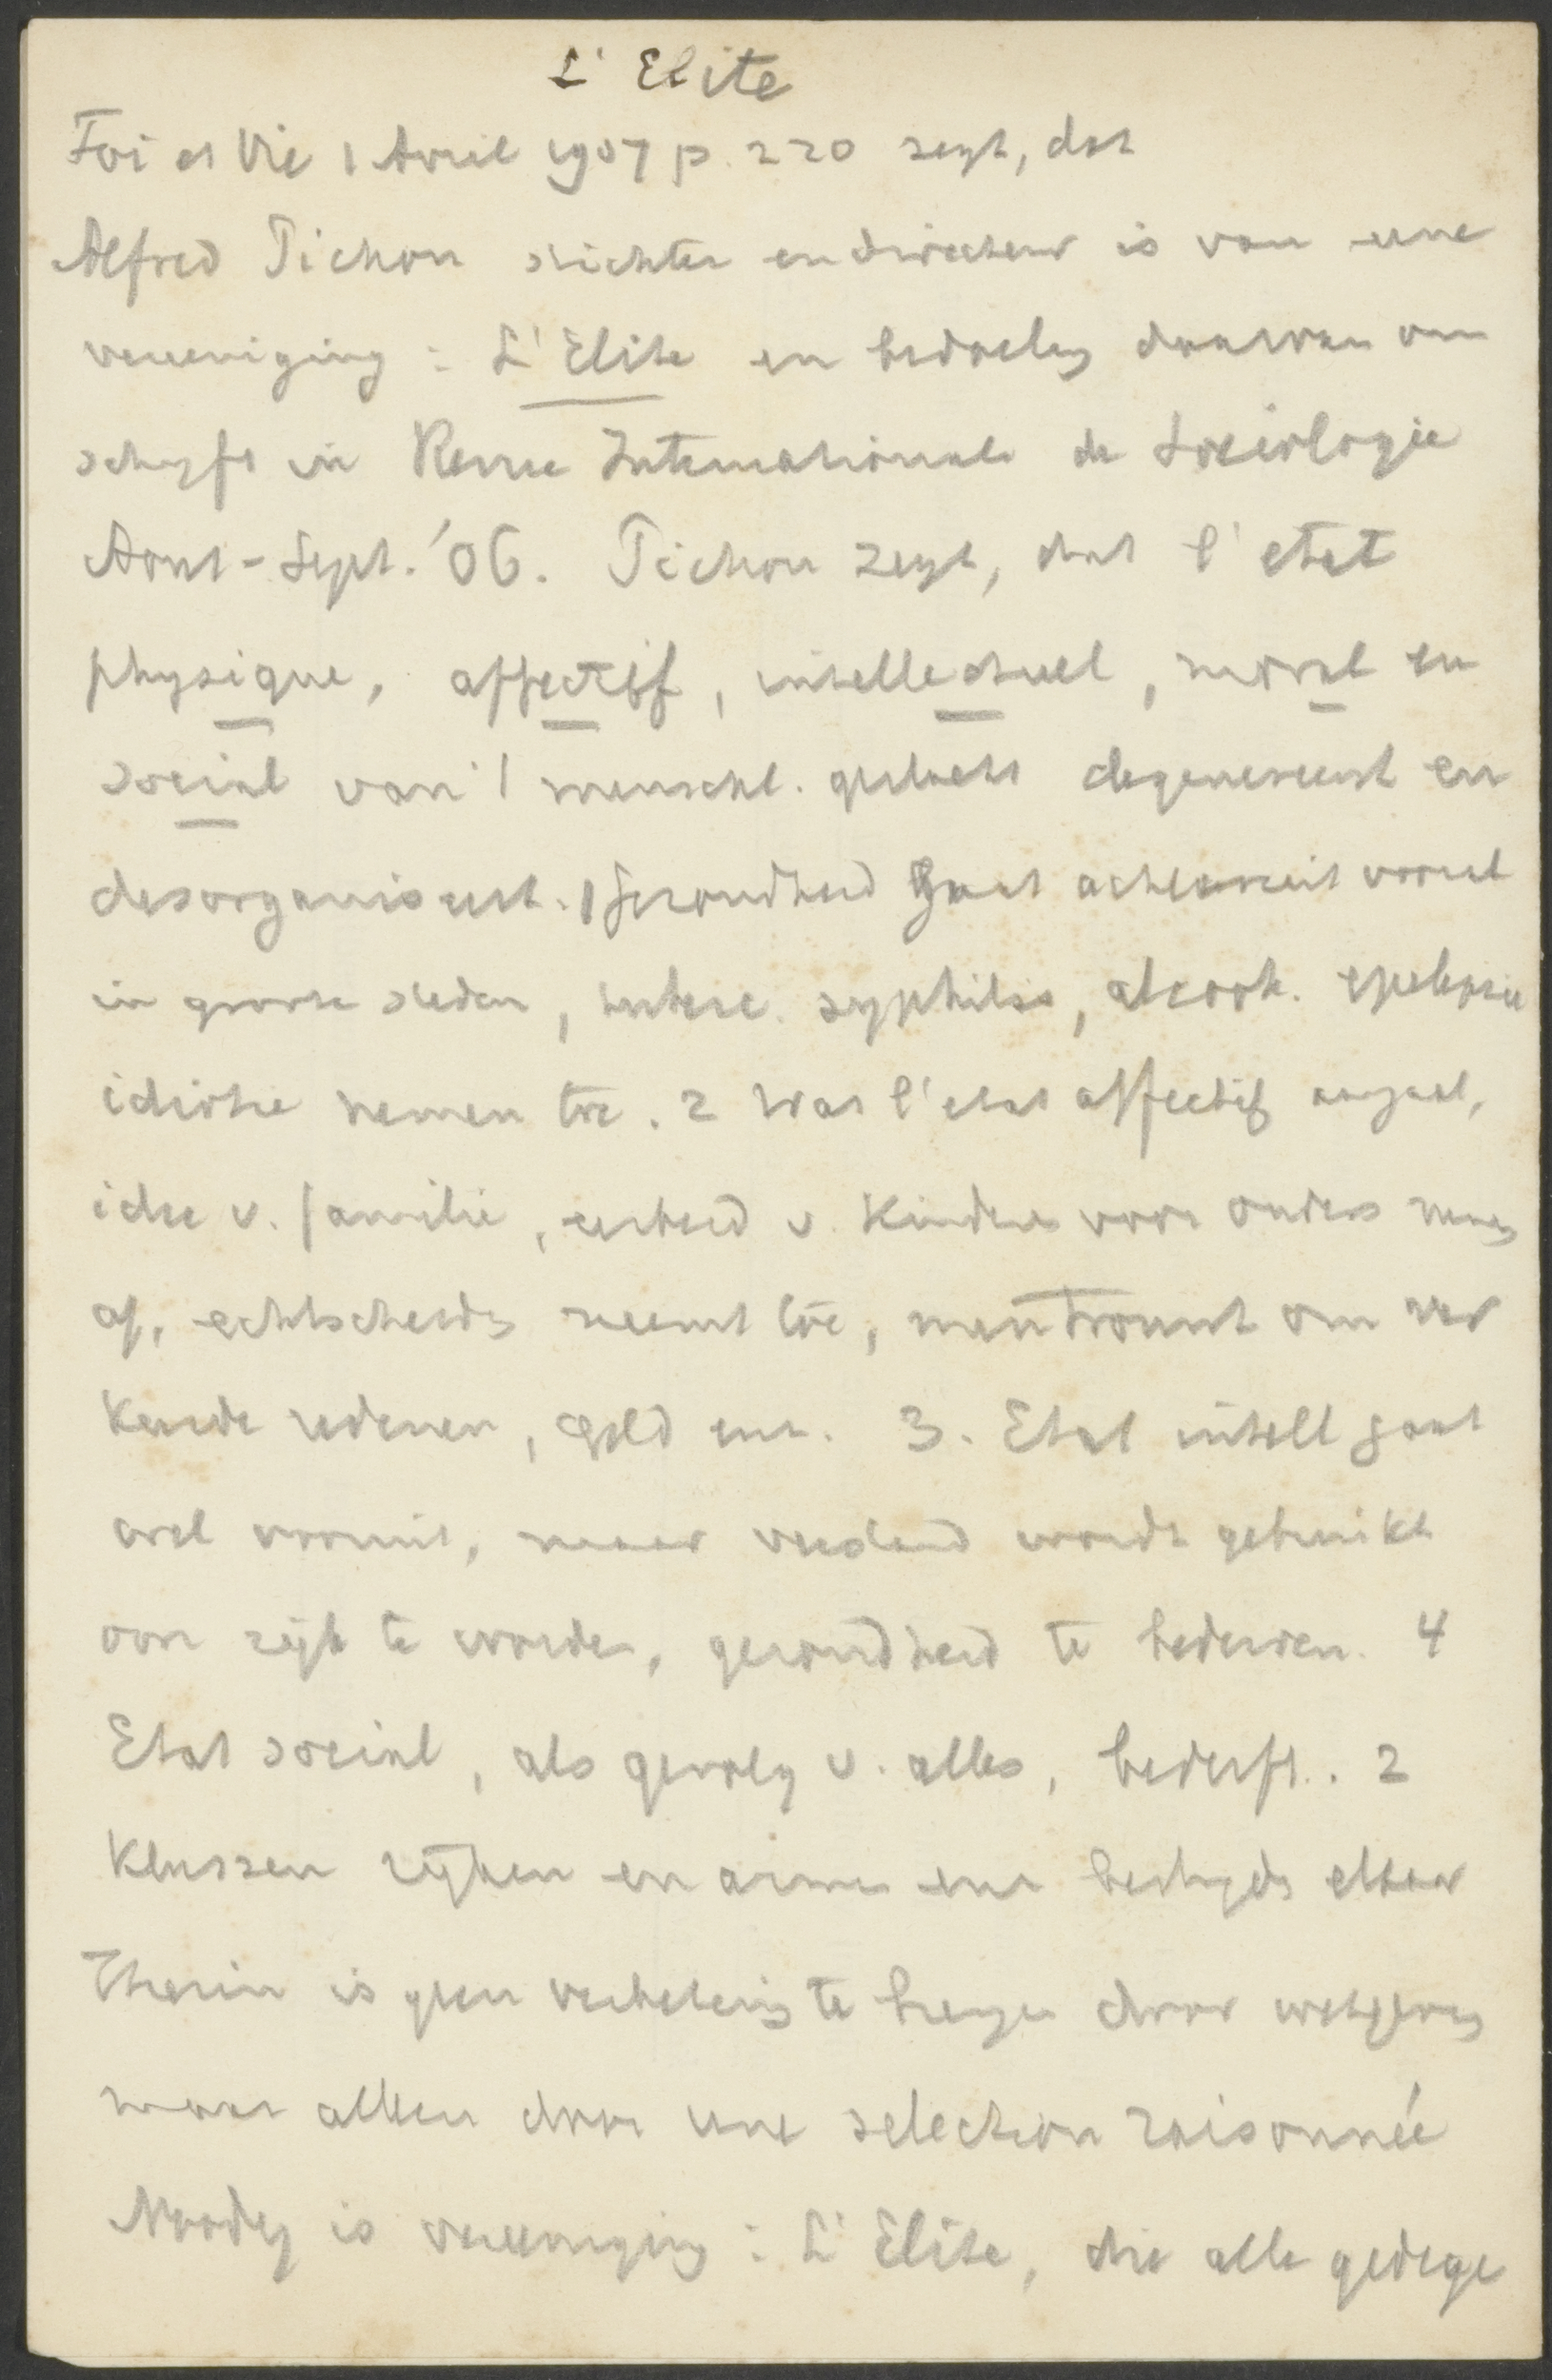 L'Elite
Foi et Vie 1 Avril 1907 p. 220 zegt, dat
Alfred Pichon stichter en directeur is van une
vereeniging : L'Elite en bedoeling daarvan om
schrijft in Revue Internationale de Sociologie
Aout - Sept. '06. Pichon zegt, dat l'etat
physique, affectif, intellectuel, moral en
social van 't menschl. geslacht degenereert en
desorganiseert. 1 Gezondheid gaat achteruit vooral
in groote steden, tuberc. syphilis, alcoh. epilepsie
idiotie nemen toe. 2 Wat l'etat affectif aangaat,
idee v. familie, eerbied v. kinderen voor ouders neemt
af, echtscheiding neemt toe, men trouwt om ver
keerde redenen, geld enz. 3. Etat intell gaat
wel vooruit, maar verstand wordt gebruikt
om rijk te worden, gezondheid te bederven. 4
Etat social, als gevolg v. alles, bederft. 2
Klassen rijken en armen enz bestrijden elkaar
Hierin is geen verbetering te brengen door wetgeving
maar alleen door une selection raisonnée
Noodig is vereeniging : L'Elite, die alle gedege